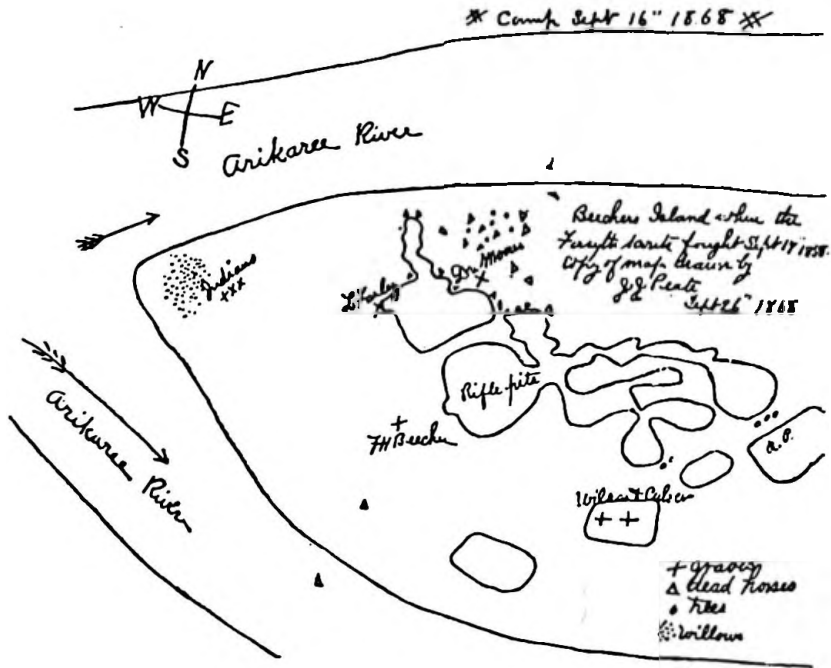 Camp Sept 16" 1868
N
W E
S
Arikaree River
Beechers Island where the
Forsyth scouts fought Sept 17 1868.
Copy of map drawn by
J J Peate
Sept 26" 1868
Indians
Moores
Rifle pits
FH Beecher
R. P.
Arikaree River
Wilson & Culver
+ graves
dead horses
trees
willows